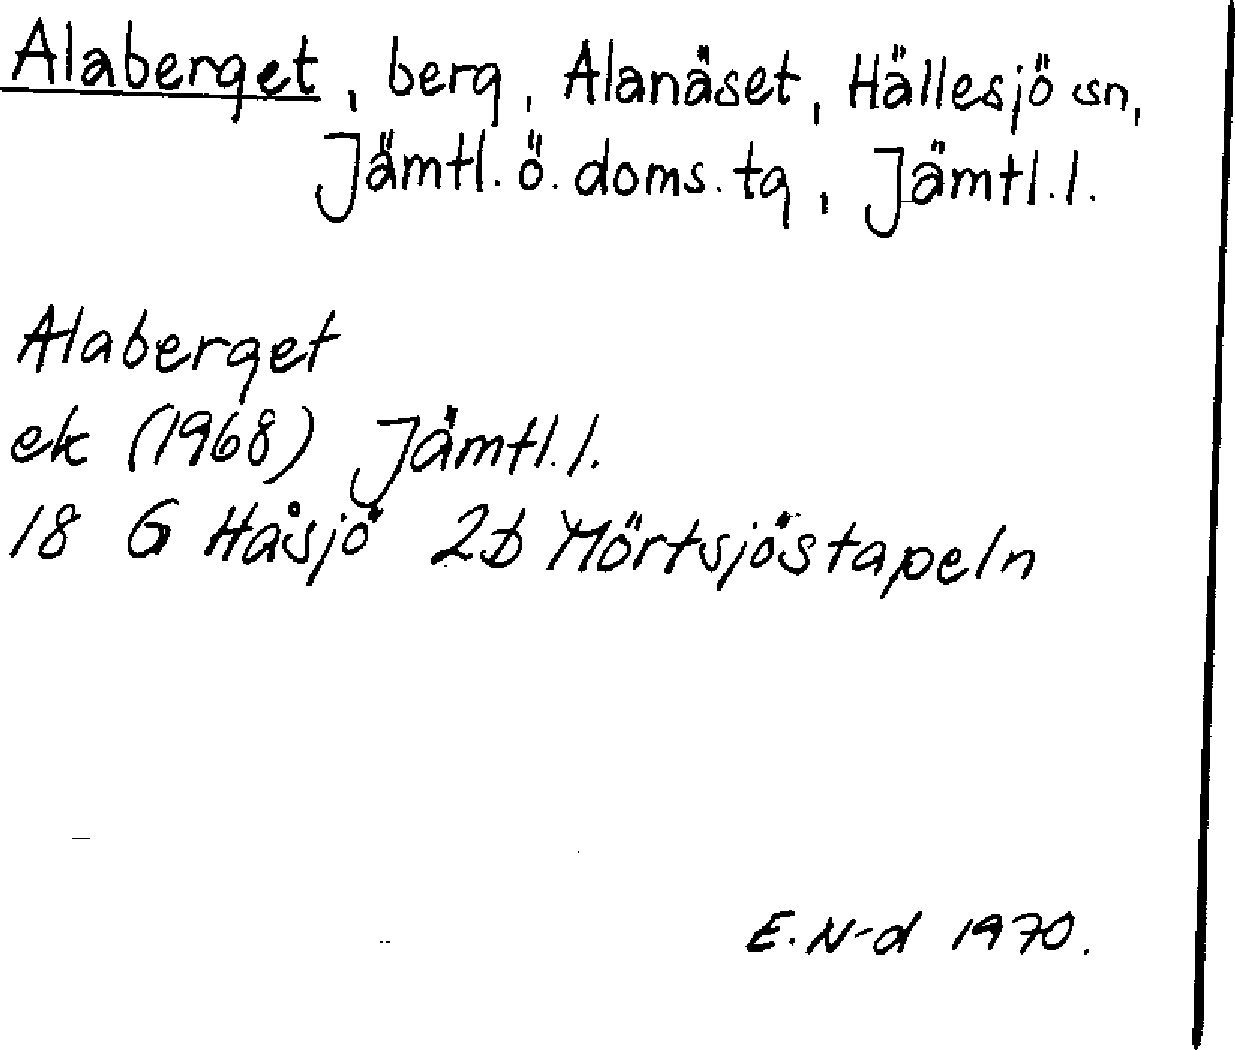 Alaberget, berg, Alanäset, Hällesjö sn,
Jämtl. ö. doms. tg, Jämtl. l.
Alaberget
ek (1968) Jämtl. l.
18 G Håsjö 2b Mörtsjöstapeln
E. N-d 1970.